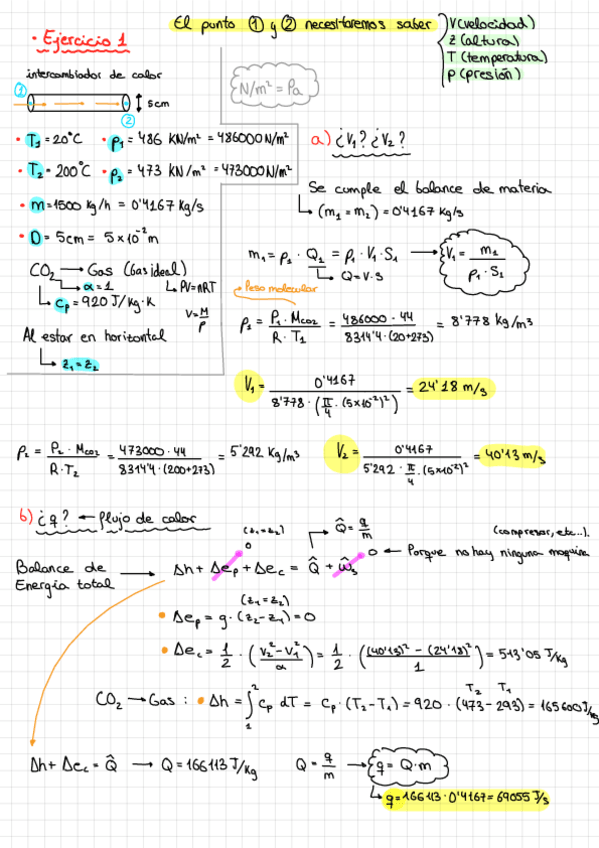 El punto ① y ② necesitaremos saber
V (velocidad)
z (altura)
T (temperatura)
P (presión)
• Ejercicio 1
intercambiador de calor
①
5cm
②
N/m² = Pa
• T₁ = 20°C • p₁ = 486 KN/m² = 486000 N/m²
• T₂ = 200°C • p₂ = 473 KN/m² = 473000 N/m²
• m = 1500 Kg/h = 0'4167 Kg/s
• D = 5cm = 5×10⁻² m
CO₂ → Gas (Gas ideal)
α = 1
PV = nRT
cp = 920 J/Kg·K
V = M/ρ
Al estar en horizontal
z₁ = z₂
a) ¿V₁? ¿V₂?
Se cumple el balance de materia
(m₁ = m₂) = 0'4167 Kg/s
m₁ = ρ₁ · Q₁ = ρ₁ · V₁ · S₁ → V₁ = m₁ / (ρ₁ · S₁)
Q = V·S
Peso molecular
ρ₁ = (P₁ · Mco₂) / (R · T₁) = (486000 · 44) / (8314'4 · (20+273)) = 8'778 Kg/m³
V₁ = 0'4167 / (8'778 · (π/4 · (5×10⁻²)²)) = 24'18 m/s
ρ₂ = (P₂ · Mco₂) / (R · T₂) = (473000 · 44) / (8314'4 · (200+273)) = 5'292 Kg/m³
V₂ = 0'4167 / (5'292 · π/4 · (5×10⁻²)²) = 40'13 m/s
b) ¿q? ← flujo de calor
(z₁ = z₂)
0
Q̂ = q/m
(compresor, etc...)
0 ← Porque no hay ninguna maquina
Balance de Energía total → Δh + Δep + Δec = Q̂ + ŵs
(z₁ = z₂)
• Δep = g · (z₂ - z₁) = 0
• Δec = 1/2 · ((V₂² - V₁²)/α) = 1/2 · (((40'13)² - (24'18)²)/1) = 513'05 J/Kg
T₂ T₁
CO₂ → Gas : • Δh = ∫₁² cp dT = cp · (T₂ - T₁) = 920 · (473 - 293) = 165600 J/Kg
Δh + Δec = Q̂ → Q = 166113 J/Kg Q = q/m → q = Q · m
q = 166113 · 0'4167 = 69055 J/s